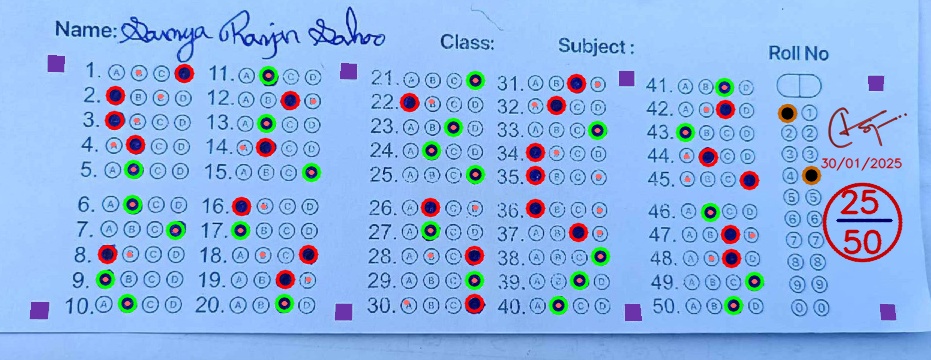 Name: Soumya Ranjan Sahoo
Class:
Subject :
Roll No
1. A B C
2. B C D
3. B C D
4. A C D
5. A C D
6. A C D
7. A B C
8. B C D
9. B C D
10. A C D
11. A C D
12. A B D
13. A C D
14. A C D
15. A B C
16. B C D
17. B C D
18. A B C
19. A B D
20. A B D
21. A B C
22. B C D
23. A B D
24. A C D
25. A B C
26. A C D
27. A C D
28. A B C
29. A B C
30. A B C
31. A B D
32. A C D
33. A B C
34. B C D
35. B C D
36. B C D
37. A B D
38. A B C
39. A B D
40. A C D
41. A B D
42. A B D
43. B C D
44. A C D
45. A B C
46. A C D
47. A B D
48. A B D
49. A B C
50. A B D
1
2 2
3 3
4
5 5
6 6
7 7
8 8
9 9
0 0
30/01/2025
25
50